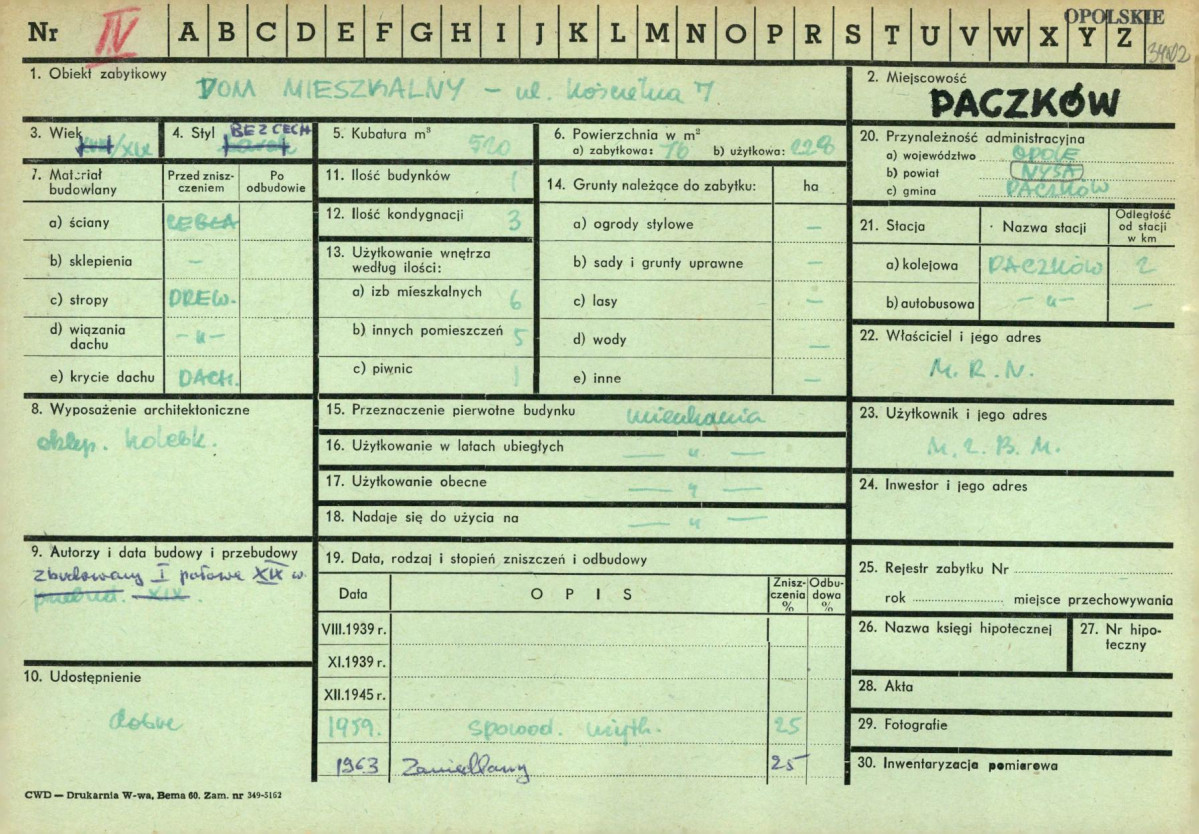 Nr IV A B C D E F G H I J K L M N O P R S T U V W X Y Z OPOLSKIE
1. Obiekt zabytkowy
DOM MIESZKALNY – ul. Kościelna 7
2. Miejscowość
PACZKÓW
3. Wiek
XVIII/XIX
4. Styl BEZ CECH
barok
5. Kubatura m³
520
6. Powierzchnia w m²
a) zabytkowa: 76 b) użytkowa: 228
20. Przynależność administracyjna
a) województwo OPOLE
b) powiat NYSA
c) gmina PACZKÓW
7. Materiał budowlany
Przed zniszczeniem
Po odbudowie
a) ściany CEGŁA
b) sklepienia –
c) stropy DREW.
d) wiązania dachu – „ –
e) krycie dachu DACH.
11. Ilość budynków 1
12. Ilość kondygnacji 3
13. Użytkowanie wnętrza według ilości:
a) izb mieszkalnych 6
b) innych pomieszczeń 5
c) piwnic 1
14. Grunty należące do zabytku: ha
a) ogrody stylowe –
b) sady i grunty uprawne –
c) lasy –
d) wody –
e) inne –
21. Stacja
Nazwa stacji
Odległość od stacji w km
a) kolejowa PACZKÓW 2
b) autobusowa – „ – –
22. Właściciel i jego adres
M. R. N.
8. Wyposażenie architektoniczne
sklep. kolebk.
15. Przeznaczenie pierwotne budynku mieszkania
16. Użytkowanie w latach ubiegłych — „ —
17. Użytkowanie obecne — „ —
18. Nadaje się do użycia na — „ —
23. Użytkownik i jego adres
M. Z. B. M.
24. Inwestor i jego adres
9. Autorzy i data budowy i przebudowy
zbudowany I połowa XIX w.
przebud. XIX.
19. Data, rodzaj i stopień zniszczeń i odbudowy
Data
OPIS
Zniszczenia %
Odbudowa %
VIII.1939 r.
XI.1939 r.
XII.1945 r.
1959. spowod. użytk. 25
1963 Zaniedbany 25
25. Rejestr zabytku Nr
rok miejsce przechowywania
26. Nazwa księgi hipotecznej
27. Nr hipoteczny
10. Udostępnienie
dobre
28. Akta
29. Fotografie
30. Inwentaryzacja pomiarowa
CWD — Drukarnia W-wa, Bema 60. Zam. nr 349-5162